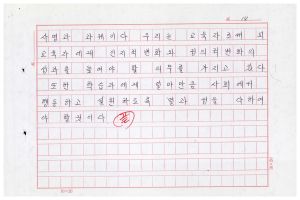 사명과 과제이다 우리는 교육자로써 피
교육자에게 인지적변화와 정의적변화의
성과를 높여야 할 의무를 가지고 있다
또한 학습과제에 알마만큼 사회에서
행동하고 실천하도록 열과 성을 다하여
야 할것이다 끝
20×10